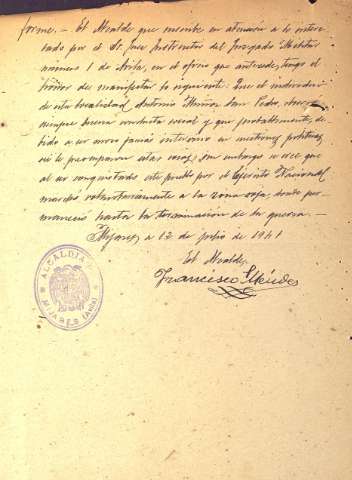 forme.- El Alcalde que suscribe en atención a lo interesado
por el Sr. Juez Instructor del Juzgado Militar
número 1 de Avila, en el oficio que antecede, tengo el
honor de manifestar lo siguiente: Que el individuo
de esta localidad Antonio Muñoz San Pedro, observó
siempre buena conducta social y que probablemente, de-
bido a un amor jamás intervino en cuestiones políticas
ni le preocuparon estas cosas, sin embargo
al ser conquistado este pueblo por el Ejército Nacional,
marchó voluntariamente a la zona roja, donde per-
maneció hasta la terminación de la guerra.-
Mijares, a 12 de julio de 1941
El Alcalde,
Francisco Méndez
ALCALDIA
MIJARES (Avila)